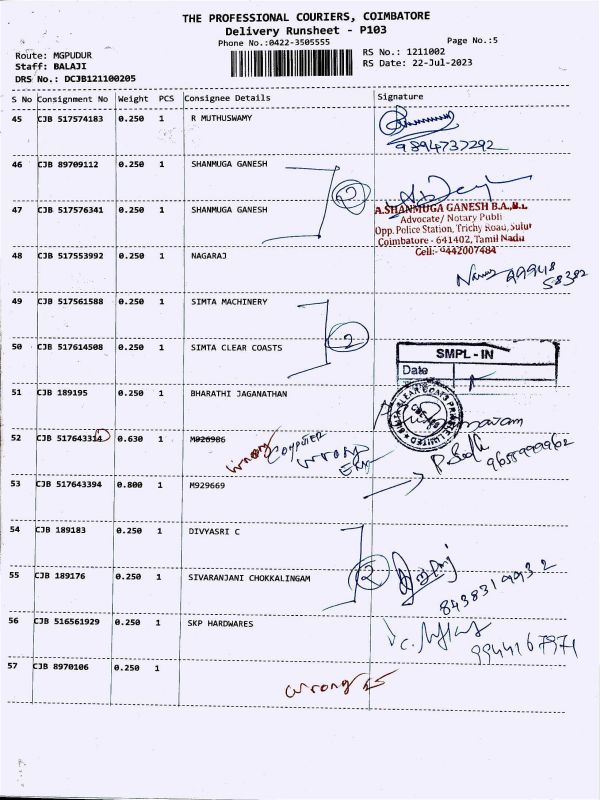 THE PROFESSIONAL COURIERS, COIMBATORE
Delivery Runsheet - P103
Phone No.:0422-3505555 Page No.:5
Route: MGPUDUR RS No.: 1211002
Staff: BALAJI RS Date: 22-Jul-2023
DRS No.: DCJB121100205
S No Consignment No Weight PCS Consignee Details Signature
45 CJB 517574183 0.250 1 R MUTHUSWAMY
9894737292
46 CJB 89709112 0.250 1 SHANMUGA GANESH
2
47 CJB 517576341 0.250 1 SHANMUGA GANESH
A.SHANMUGA GANESH B.A.,B.L.
Advocate/ Notary Publi
Opp. Police Station, Trichy Road, Sulur
Coimbatore - 641402, Tamil Nadu
Cell:- 9442007484
48 CJB 517553992 0.250 1 NAGARAJ
99948
58382
49 CJB 517561588 0.250 1 SIMTA MACHINERY
2
50 CJB 517614508 0.250 1 SIMTA CLEAR COASTS
SMPL - IN
Date
51 CJB 189195 0.250 1 BHARATHI JAGANATHAN
52 CJB 517643314 0.630 1 M026986
wrong Computer wrong
9655999962
53 CJB 517643394 0.800 1 M929669
54 CJB 189183 0.250 1 DIVYASRI C
2
55 CJB 189176 0.250 1 SIVARANJANI CHOKKALINGAM
8438319932
56 CJB 516561929 0.250 1 SKP HARDWARES
9944167971
57 CJB 8970106 0.250 1
wrong